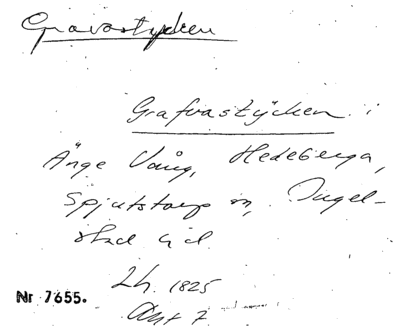 Gravastycken
Grafvastÿcken i
Änge Vång, Hedeberga,
Spjutstorp sn, Ingel-
stad hd
Lh. 1825
Akt 7
Nr 7655.